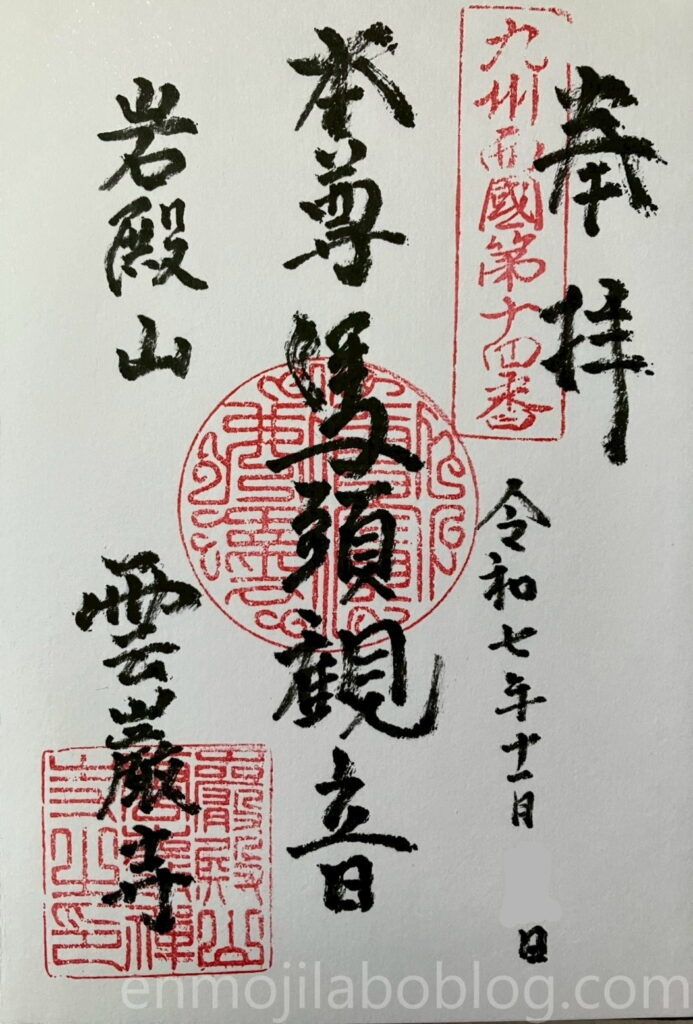 奉拝
九州西國第十四番
令和七年十一月 日
本尊馬頭観音
岩殿山
雲巖寺
enmojilaboblog.com